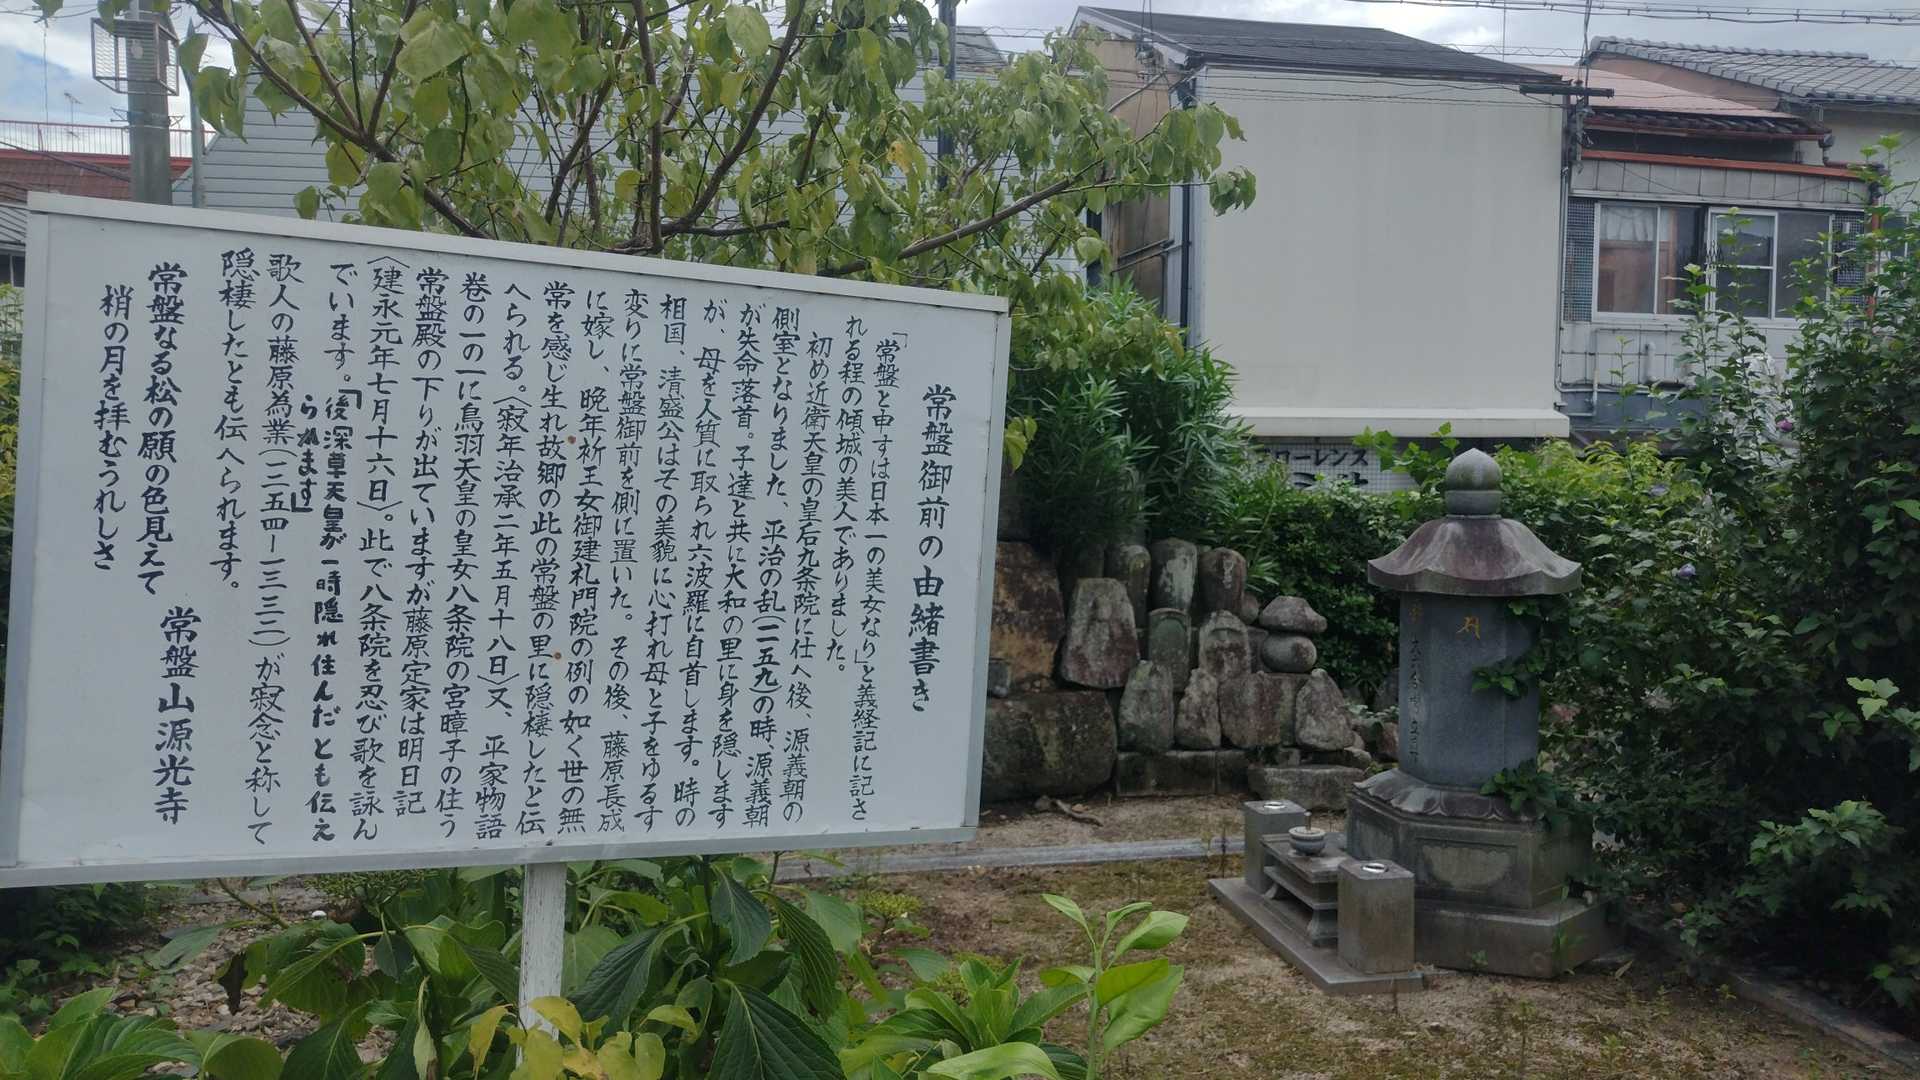 常盤御前の由緒書き
「常盤と申すは日本一の美女なり」と義経記に記さ
れる程の傾城の美人でありました。
初め近衛天皇の皇后九条院に仕へ後、源義朝の
側室となりました、平治の乱(一一五九)の時、源義朝
が失命落首。子達と共に大和の里に身を隠します
が、母を人質に取られ六波羅に自首します。時の
相国、清盛公はその美貌に心打れ母と子をゆるす
変りに常盤御前を側に置いた。その後、藤原長成
に嫁し、晩年祈王女御建礼門院の例の如く世の無
常を感じ生れ故郷の此の常盤の里に隠棲したと伝
へられる。〈寂年治承二年五月十八日〉又、平家物語
巻の一の一に鳥羽天皇の皇女八条院の宮暲子の住う
常盤殿の下りが出ていますが藤原定家は明日記
〈建永元年七月十六日〉。此で八条院を忍び歌を詠ん
でいます。「後深草天皇が一時隠れ住んだとも伝え
られます」
歌人の藤原為業(一二五四ー一三三二)が寂念と称して
隠棲したとも伝へられます。
常盤なる松の願の色見えて
梢の月を拝むうれしさ
常盤山源光寺
ローレンス